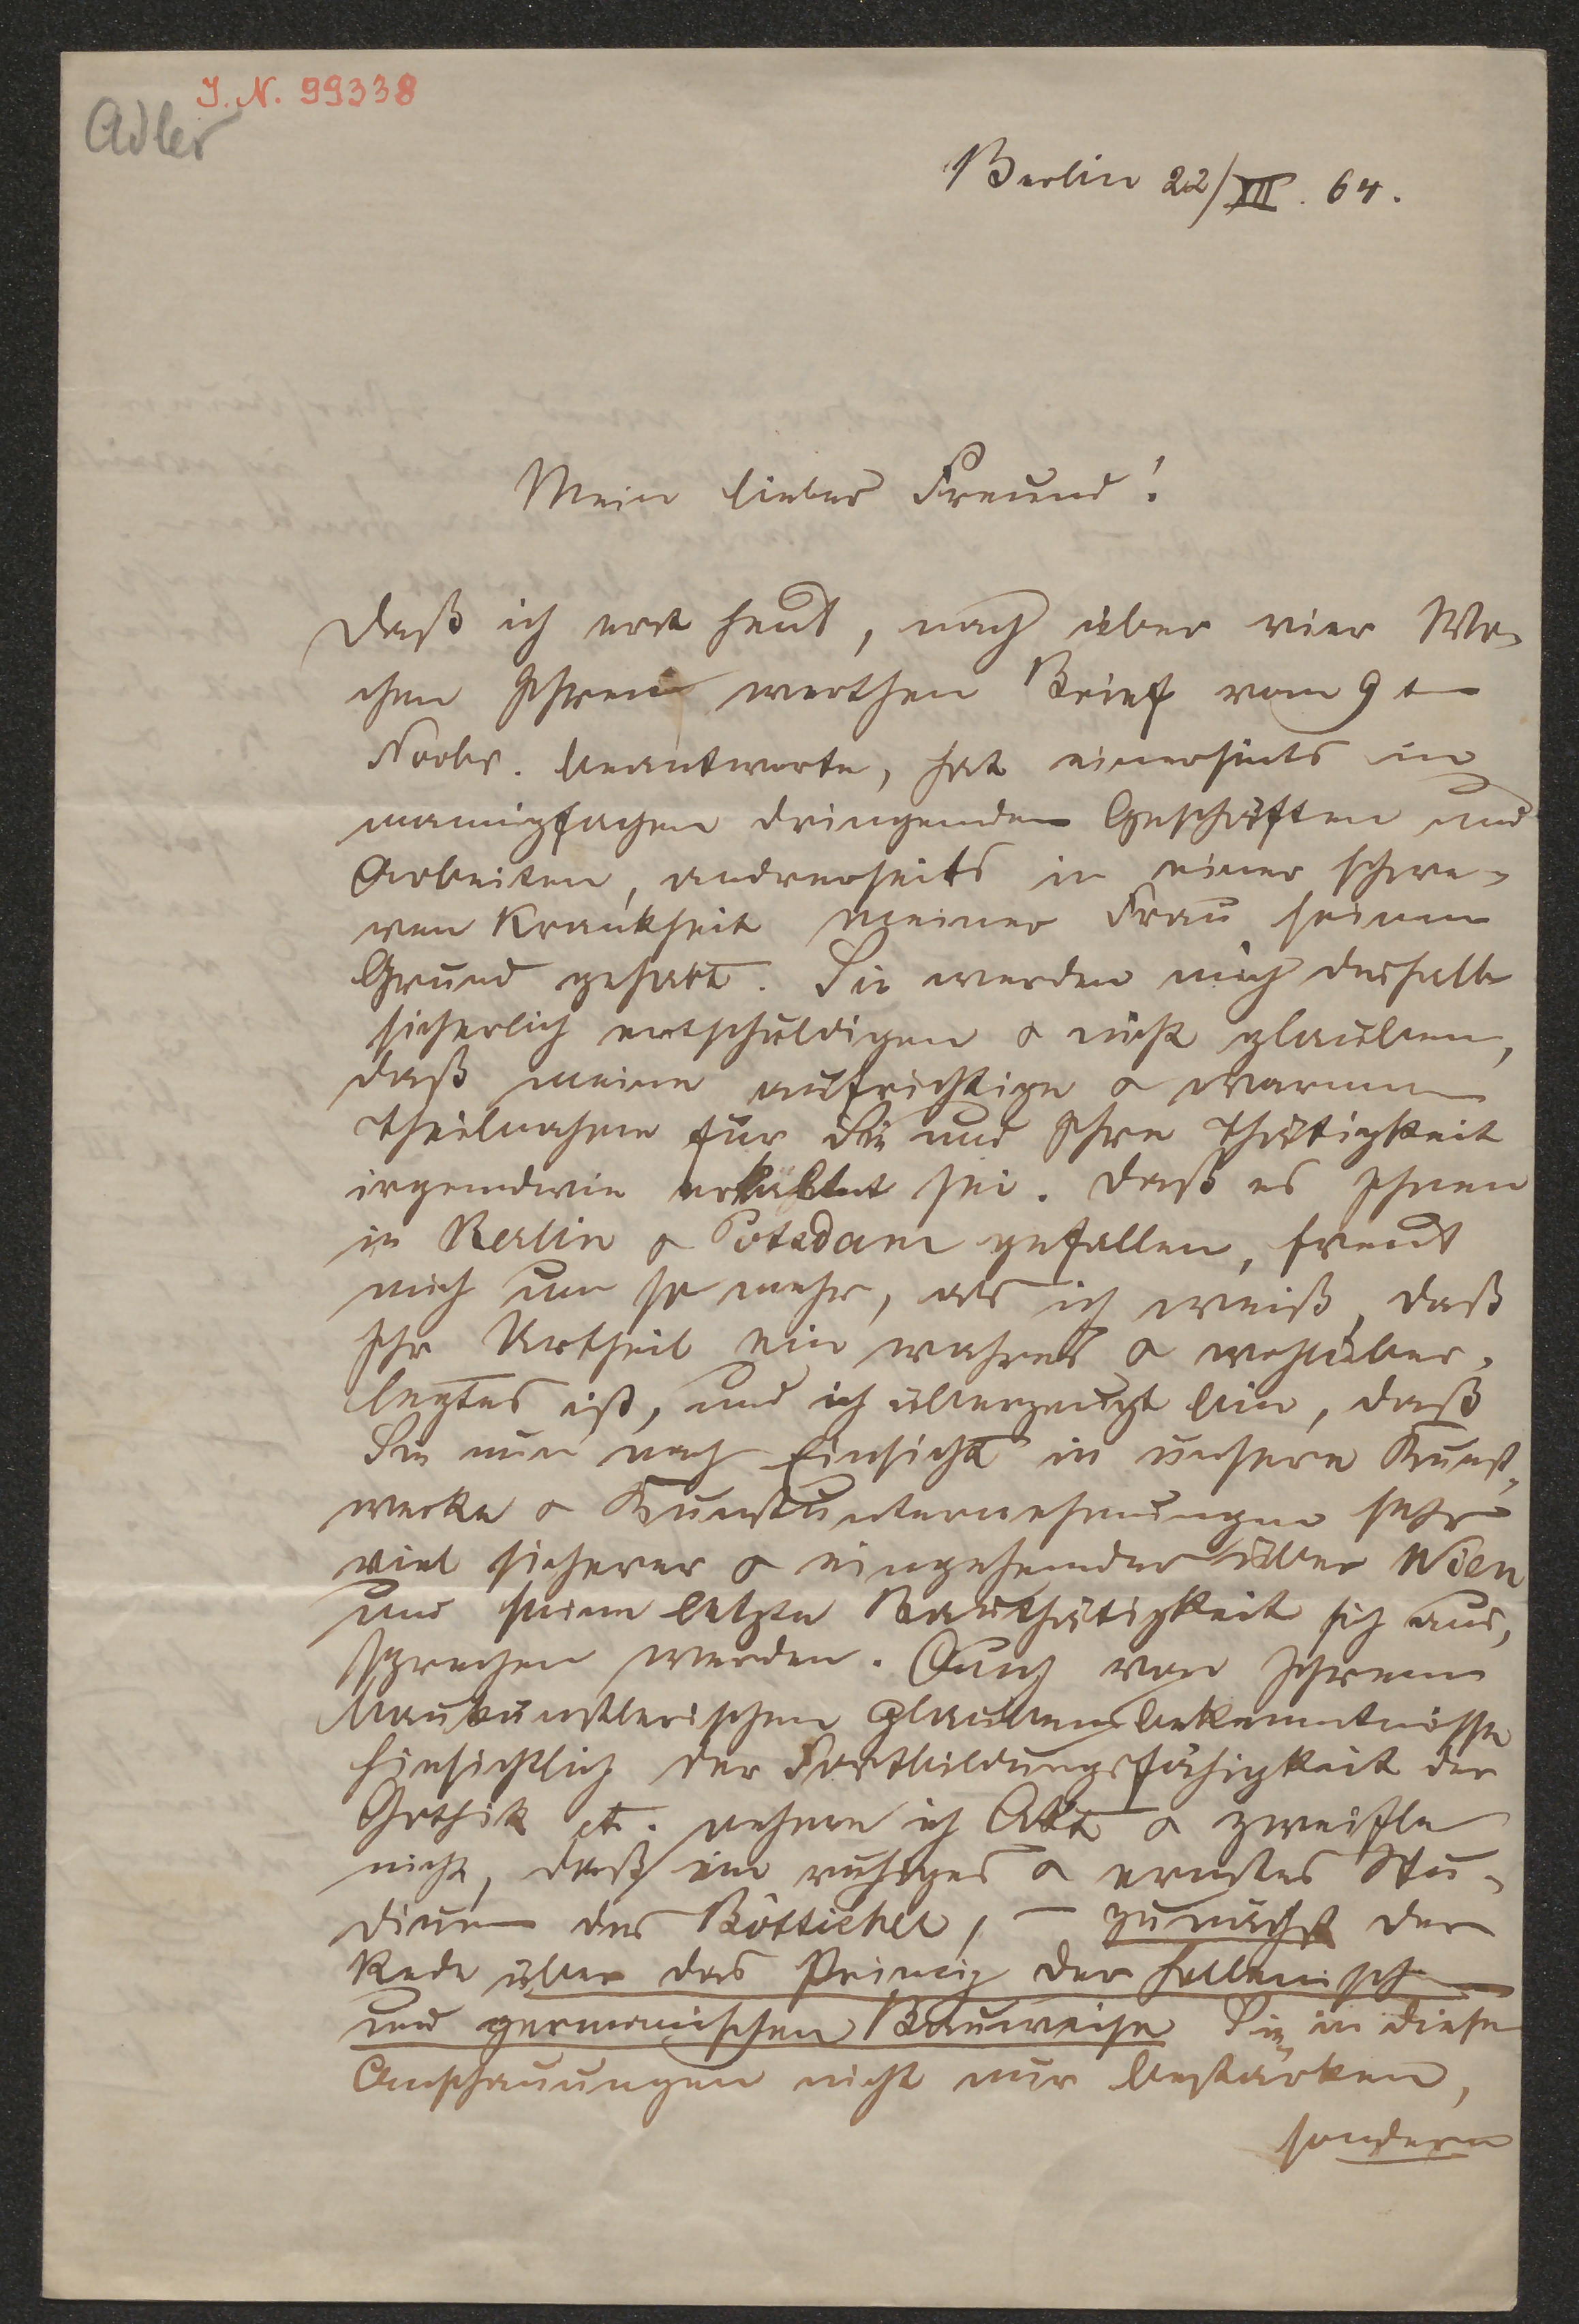 J. N. 99338
Adler
Berlin 22/XII. 64.
Mein lieber Freund!
Daß ich erst heut, nach über vier Wo-
chen Ihren werthen Brief vom 9t
Novbr. beantworte, hat einerseits in
mannigfachen dringenden Geschäften und
Arbeiten, andrerseits in einer schwe-
ren Krankheit meiner Frau seinen
Grund gehabt. Sie werden mich deshalb
sicherlich entschuldigen & nicht glauben,
daß meine aufrichtige & warme
Theilnahme für Sie und Ihre Thätigkeit
irgendwie erkaltet sei. Daß es Ihnen
in Berlin & Potsdam gefallen, freut
mich um so mehr, als ich weiß, daß
Ihr Urtheil ein wahres & wohlüber-
legtes ist, und ich überzeugt bin, daß
Sie nun nach Einsicht in unsere Kunst-
werke & Kunstunternehmungen sehr
viel sicherer & eingehender über Wien
und seine letzte Bauthätigkeit sich aus-
sprechen werden. Auch von Ihrem
baukünstlerischen Glaubensbekenntnisse
hinsichtlich der Fortbildungsfähigkeit der
Gothik etc. nehme ich Akt & zweifle
nicht, daß ein ruhiges & ernstes Stu-
dium des Bötticher, – zunächst der
Rede über das Princip der hellenischen
und germanischen Bauweise Sie in diesen
Anschauungen nicht nur bestärken,
sondern